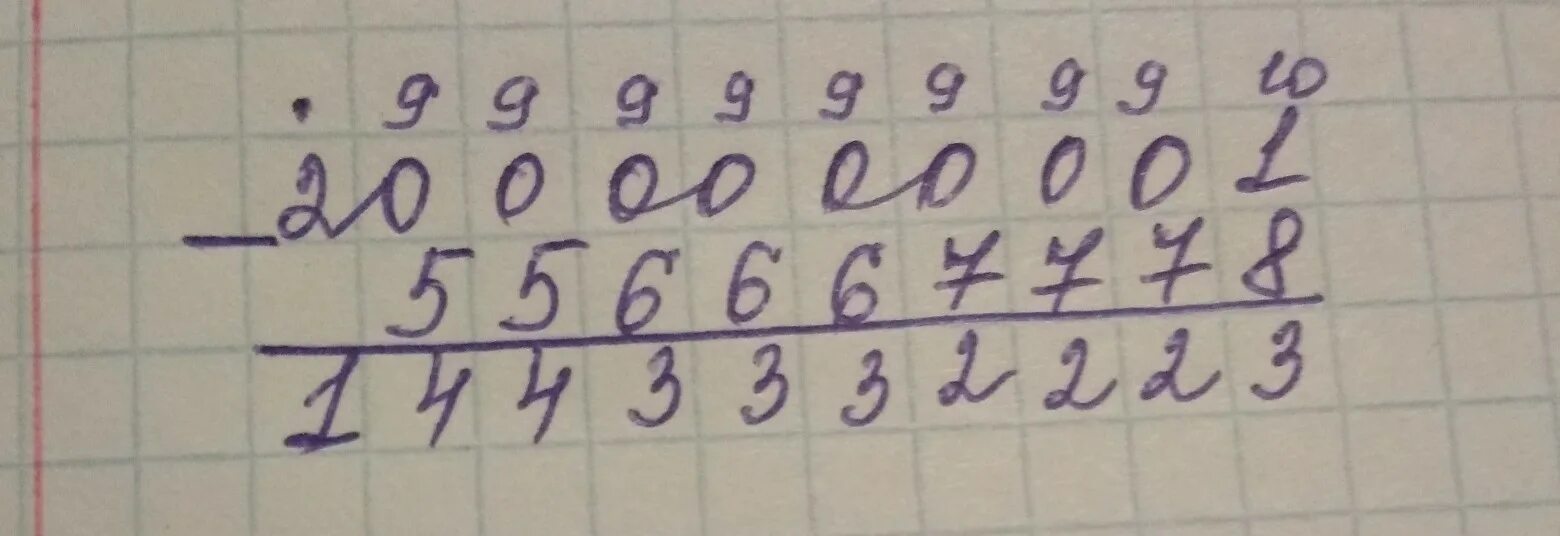 . 9 9 9 9 9 9 9 9 10
2000000001
—
556667778
1443332223